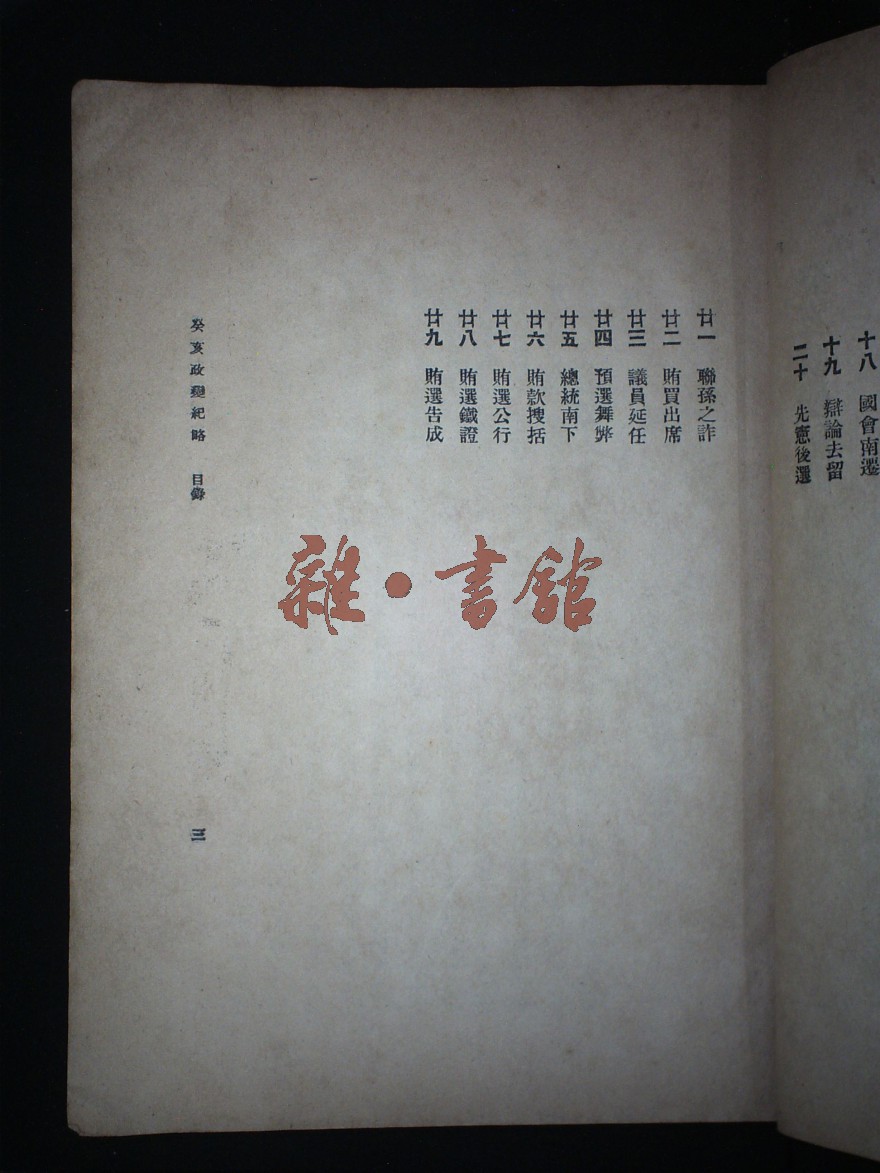 十八 國會南遷
十九 辯論去留
二十 先憲後選
廿一 聯孫之詐
廿二 賄買出席
廿三 議員延任
廿四 預選舞弊
廿五 總統南下
廿六 賄款搜括
廿七 賄選公行
廿八 賄選鐵證
廿九 賄選告成
癸亥政變紀略 目錄
三
雜·書館